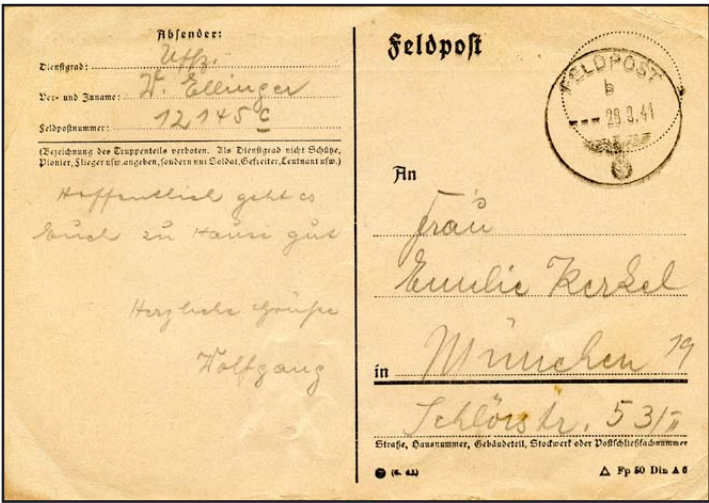 Absender:
Dienstgrad: Uffz.
Vor- und Zuname: W. Ellinger
Feldpostnummer: 12145 C
(Bezeichnung des Truppenteils verboten. Als Dienstgrad nicht Schütze,
Pionier, Flieger usw. angeben, sondern nur Soldat, Gefreiter, Leutnant usw.)
Hoffentlich geht es
Euch zu Hause gut
Herzliche Grüße
Wolfgang
Feldpost
FELDPOST
b
29.8.41
An
Frau
Emilie
in München 19
Schlörstr. 53/II
Straße, Hausnummer, Gebäudeteil, Stockwerk oder Postschließfachnummer
Fp 50 Din A 6